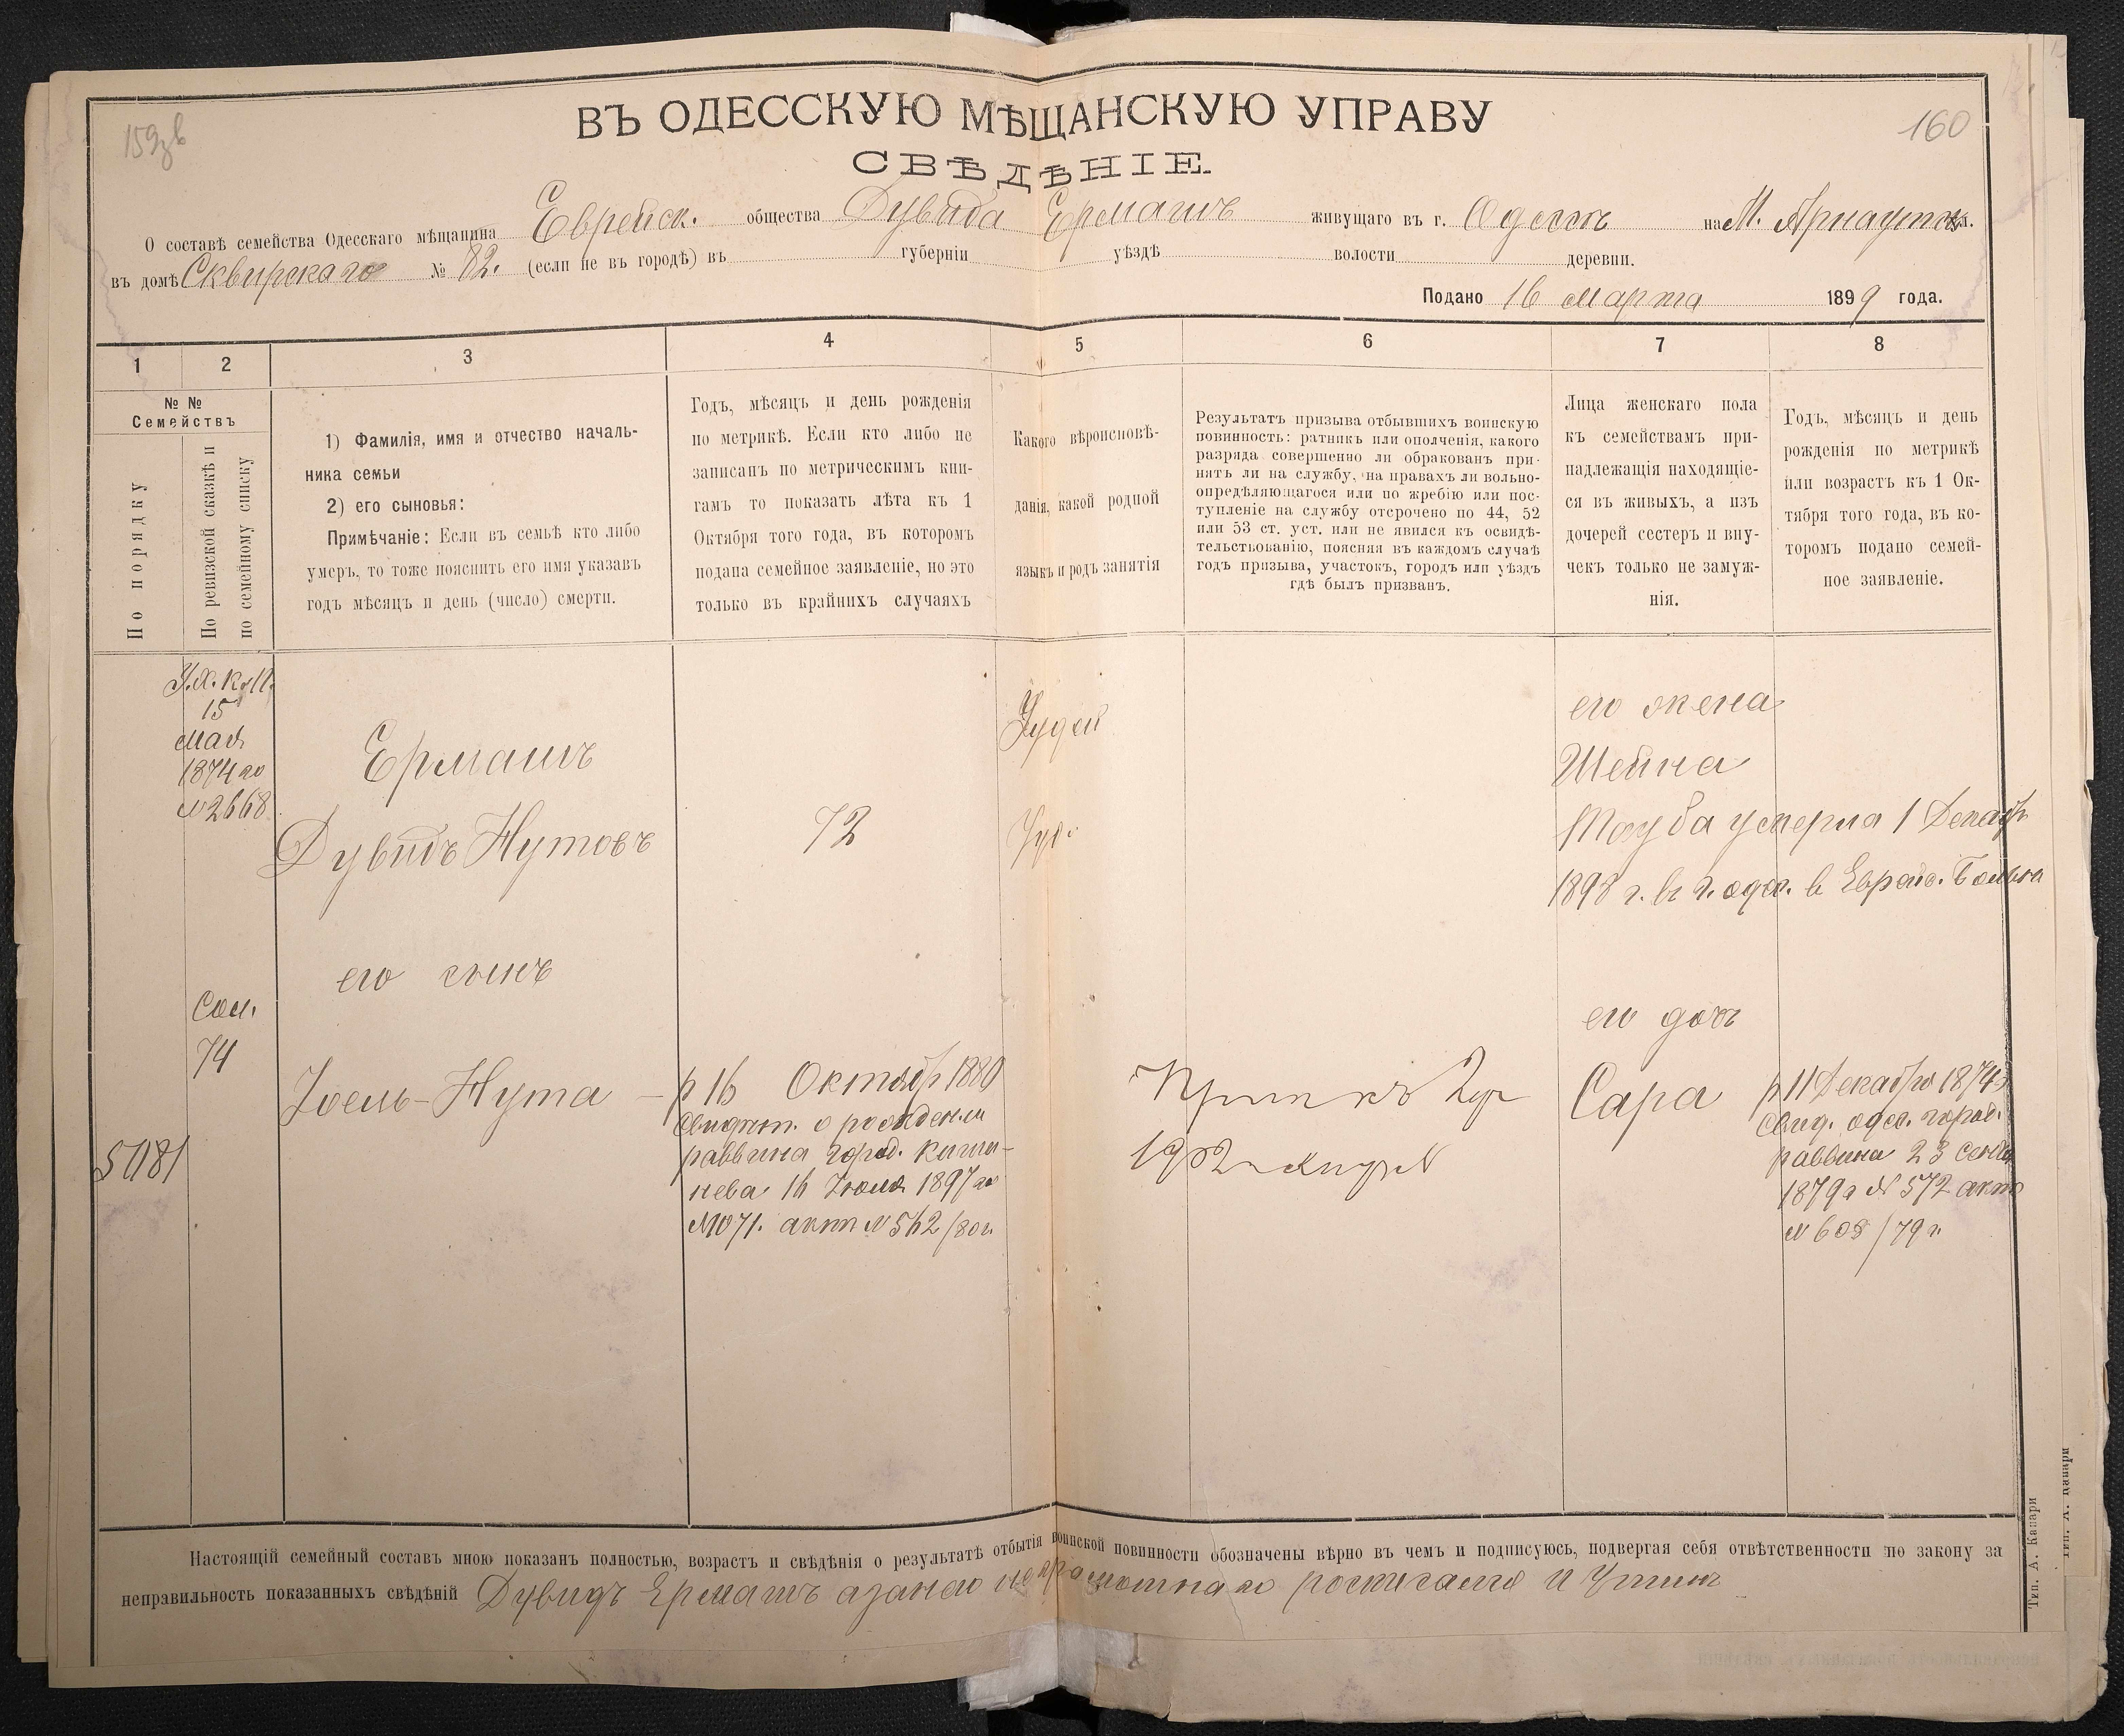 160
ВЪ ОДЕССКУЮ МѢЩАНСКУЮ УПРАВУ
СВѢДѢНІЕ.
О составѣ семейства Одесскаго мѣщанина Еврейск. общества Дувида Ермашъ живущаго въ г. Одессѣ на М. Арнаутск ул.
въ домѣ Сквирскаго № 82. (если не въ городѣ) въ губерніи уѣздѣ волости деревни.
Подано 16 марта 1899 года.
1 2 3 4 5 6 7 8
№ №
Семействъ
По порядку
По ревизской сказкѣ и
по семейному списку
1) Фамилія, имя и отчество началь-
ника семьи
2) его сыновья:
Примѣчаніе: Если въ семьѣ кто либо
умеръ, то тоже пояснить его имя указавъ
годъ мѣсяцъ и день (число) смерти.
Годъ, мѣсяцъ и день рожденія
по метрикѣ. Если кто либо не
записанъ по метрическимъ кни-
гамъ то показать лѣта къ 1
Октября того года, въ которомъ
подана семейное заявленіе, но это
только въ крайнихъ случаяхъ
Какого вѣроисповѣ-
данія, какой родной
языкъ и родъ занятія
Результатъ призыва отбывшихъ воинскую
повинность: ратникъ или ополченія, какого
разряда совершенно ли обракованъ при-
нятъ ли на службу, на правахъ ли вольно-
опредѣляющагося или по жребію или пос-
тупленіе на службу отсрочено по 44, 52
или 53 ст. уст. или не явился къ освидѣ-
тельствованію, поясняя въ каждомъ случаѣ
годъ призыва, участокъ, городъ или уѣздъ
гдѣ былъ призванъ.
Лица женскаго пола
къ семействамъ при-
надлежащія находящіе-
ся въ живыхъ, а изъ
дочерей сестеръ и вну-
чекъ только не замуж-
нія.
Годъ, мѣсяцъ и день
рожденія по метрикѣ
или возрастъ къ 1 Ок-
тября того года, въ ко-
торомъ подано семей-
ное заявленіе.
15
мая
1874 го
№2668
Ермашъ
Дувидъ Нутовъ
72
Іудей
его жена
Шейна
Тауба умерла 1 Декабр
1898 г. въ г. одес. в Еврейс. Больн
его сынъ
74
5081
Іоель-Нута —
р 16 Октябр 1880
Свидѣт. о рожденіи
раввина город. Киши-
нева 16 Іюля 1897 го
акт № 562/80 г.
1902
его дочь
Сара
р 11 Декабря 187
Свид. одес. город.
раввина 23 Сент
1879 г № 572 акт
№ 608/79 г.
Настоящій семейный составъ мною показанъ полностью, возрастъ и свѣдѣнія о результатѣ отбытія воинской повинности обозначены вѣрно въ чемъ и подписуюсь, подвергая себя отвѣтственности по закону за
неправильность показанныхъ свѣдѣній Дувидъ Ермашъ а за него неграмотнаго росписался
Тип. А. Канари
Тип. А. Канари